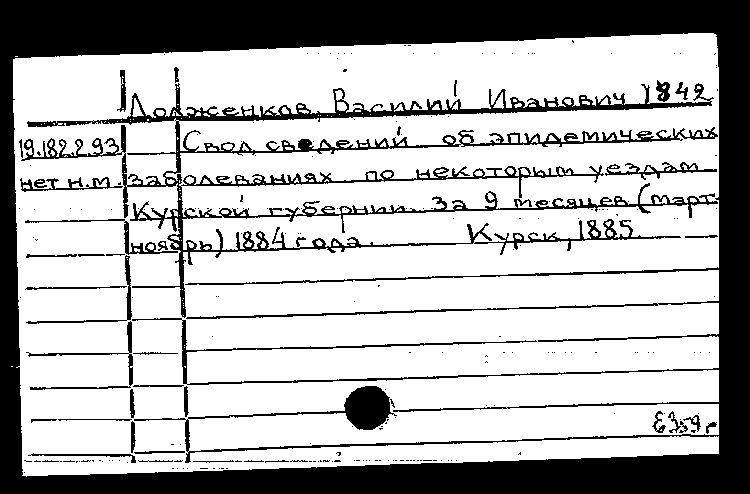 Долженков, Василий Иванович 1842
19.182.2.93 Свод сведений об эпидемических
нет н.м. заболеваниях по некоторым уездам
Курской губернии за 9 месяцев (март-
ноябрь) 1884 года. Курск, 1885
Е359г